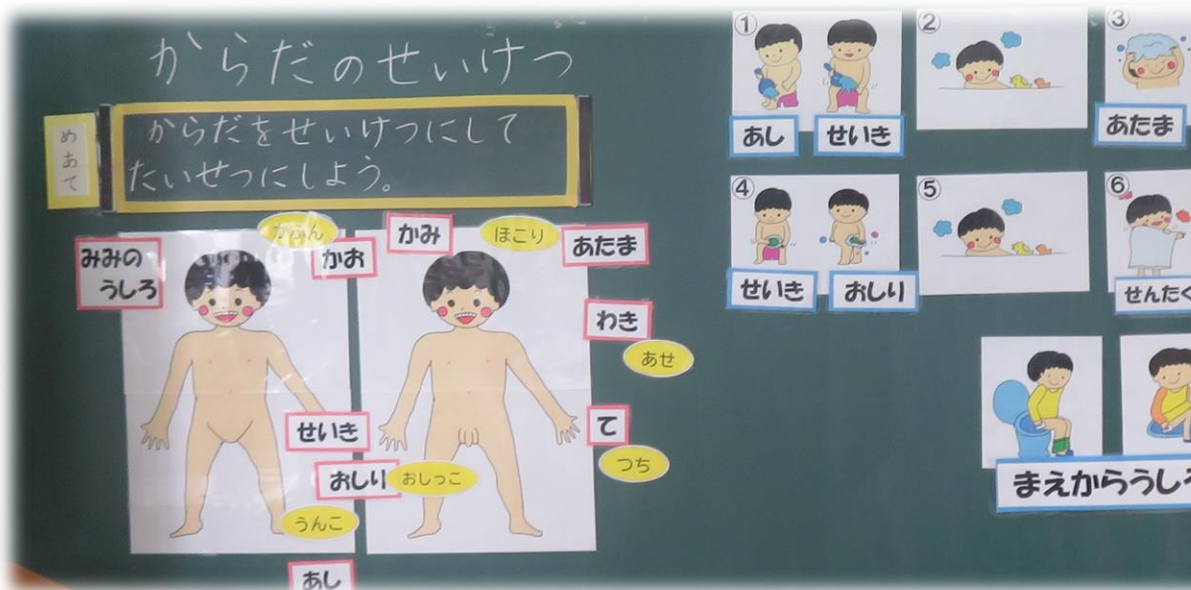 からだのせいけつ
めあて
からだをせいけつにして
たいせつにしよう。
みみの
うしろ
かふん
かお
かみ
ほこり
あたま
わき
あせ
せいき
て
つち
おしり
おしっこ
うんこ
あし
①
あし
せいき
②
③
あたま
④
せいき
おしり
⑤
⑥
せんたく
まえからうしろ